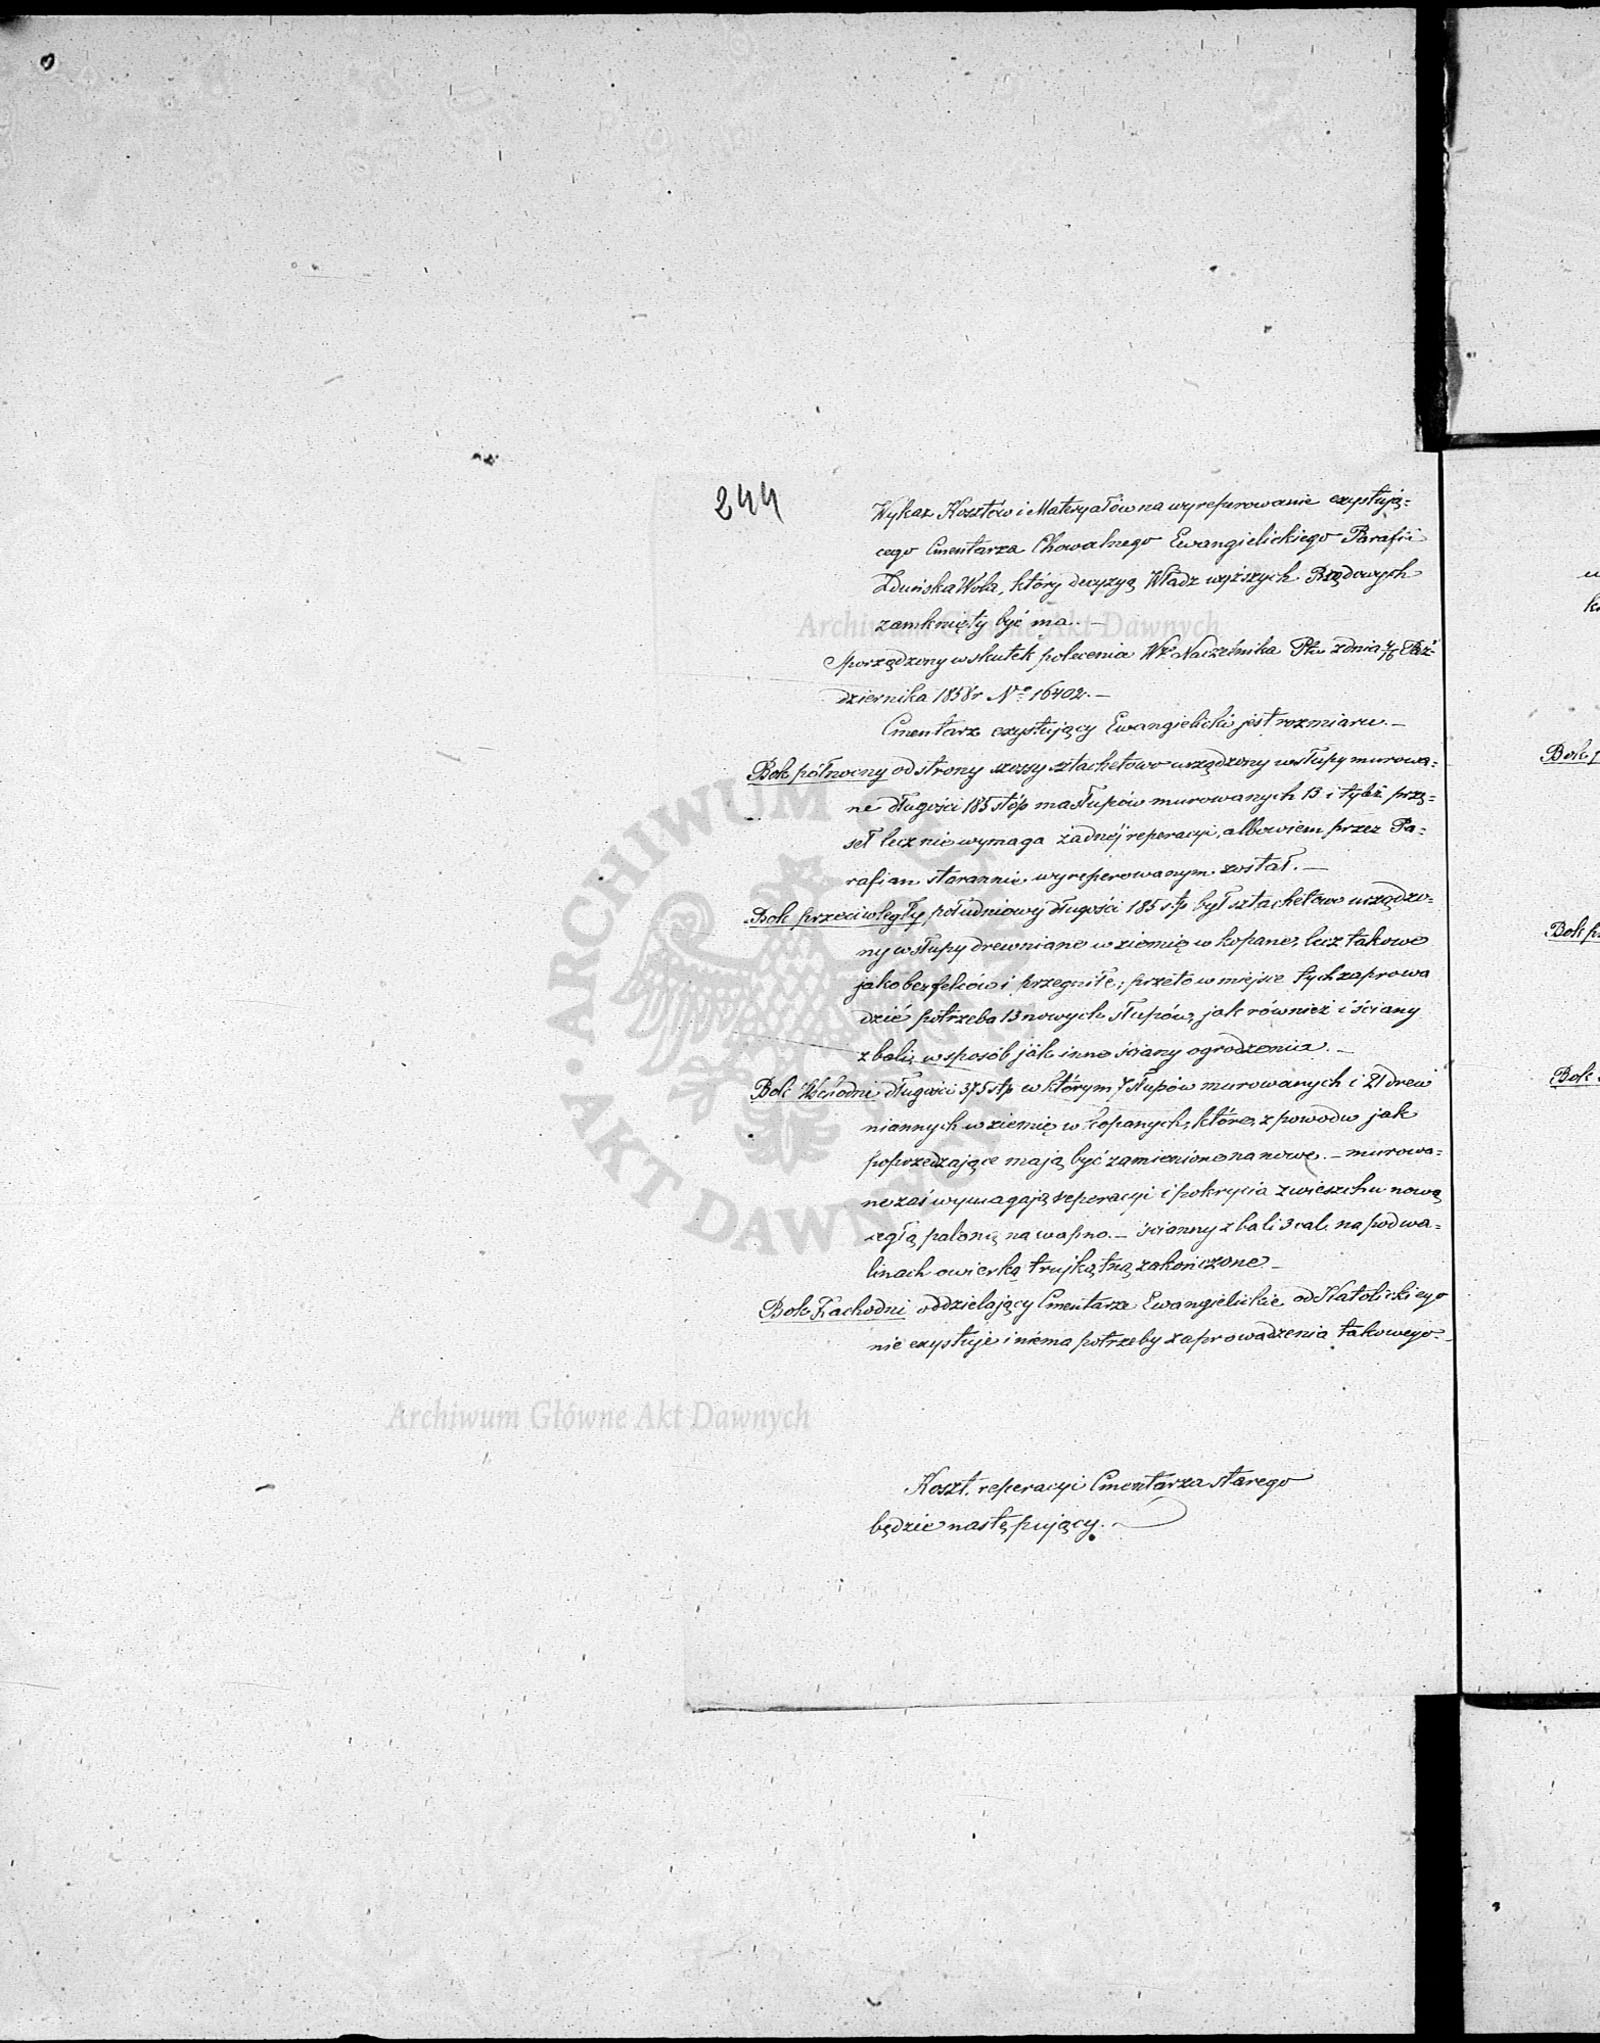 244
Wykaz Kosztów i Materyałów na wyreperowanie exystują=
cego Cmentarza Chowalnego Ewangielickiego Parafii
Zduńska Wola, który decyzyą Władz wyższych Rządowych
zamknięty być ma. —
Archiwum Główne Akt Dawnych
Sporządzony w skutek polecenia Wo Naczelnika Ptu z dnia 4/16 Paź=
dziernika 1858 r No 16402. —
Cmentarz exystujący Ewangielicki jest rozmiaru. —
Bok północny od strony szossy sztachetowo urządzony w słupy murowa=
ne długości 185 stóp ma słupów murowanych 13 i tyleż przę=
seł lecz nie wymaga żadnéj reperacyi, albowiem przez Pa=
rafian starannie wyreperowanym został. —
Bok przeciwległy południowy długości 185 stp był sztachetowo urządzo=
ny w słupy drewniane w ziemię w kopane, lecz takowe
jako bez felców i przegniłe; przeto w miejsce tych zaprowa
dzić potrzeba 13 nowych słupów, jak również i ściany
z bali, w sposób jak inne ściany ogrodzenia. —
Bok Wschodni długości 375 stp w którym 7 słupów murowanych i 21 drew
niannych w ziemię w kopanych, które, z powodu jak
poprzedzające mają być zamienione na nowe. — murowa=
ne zaś wymagają reperacyi i pokrycia z wieszchu nową
cegłą paloną na wapno. — ścianny z bali 3 cal. na podwa=
linach owierką trujkątną zakończone —
Bok Zachodni oddzielający Cmentarze Ewangielickie od Katolickiego
nie exystuje i niema potrzeby zaprowadzenia takowego. —
Archiwum Główne Akt Dawnych
Koszt. reperacyi Cmentarza starego
będzie następujący. —
ARCHIWUM GŁÓWNE AKT DAWNYCH
Bok
Bok
Bok